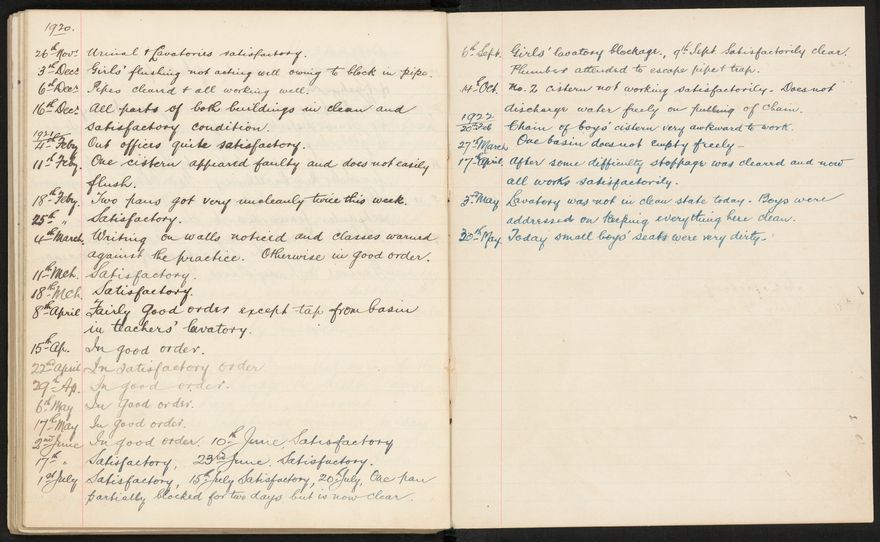 1920.
26th Novr Urinal & Lavatories satisfactory.
3rd Decr Girls' flushing not acting well owing to block in pipe.
6th Decr Pipes cleared & all working well.
16th Decr All parts of both buildings in clean and
satisfactory condition.
1921
4th Feby Out offices quite satisfactory.
11th Feby. One cistern appeared faulty and does not easily
flush.
18th Feby. Two pans got very uncleanly twice this week.
25th " Satisfactory.
4th March. Writing on walls noticed and classes warned
against the practice. Otherwise in good order.
11th Mch. Satisfactory.
18th Mch. Satisfactory.
8th April Fairly good order except tap from basin
in teachers' lavatory.
15th Ap. In good order.
22nd April In satisfactory order
29th Ap. In good order.
6th May In good order.
17th May In good order.
2nd June In good order. 10th June Satisfactory
17th " Satisfactory, 23rd June. Satisfactory.
1st July Satisfactory, 15th July Satisfactory, 20th July, One pan
partially blocked for two days but is now clear.
6th Sept. Girls' lavatory blockage., 9th Sept. Satisfactorily clear.
Plumber attended to escape pipe & trap.
14th Oct. No. 2 cistern not working satisfactorily - Does not
discharge water freely on pulling of chain.
1922
20th Feb Chain of boys' cistern very awkward to work.
27th March One basin does not empty freely -
17th April. After some difficulty stoppage was cleared and now
all works satisfactorily.
3rd May Lavatory was not in clean state today - Boys were
addressed on keeping everything here clean.
30th May. Today small boys' seats were very dirty -